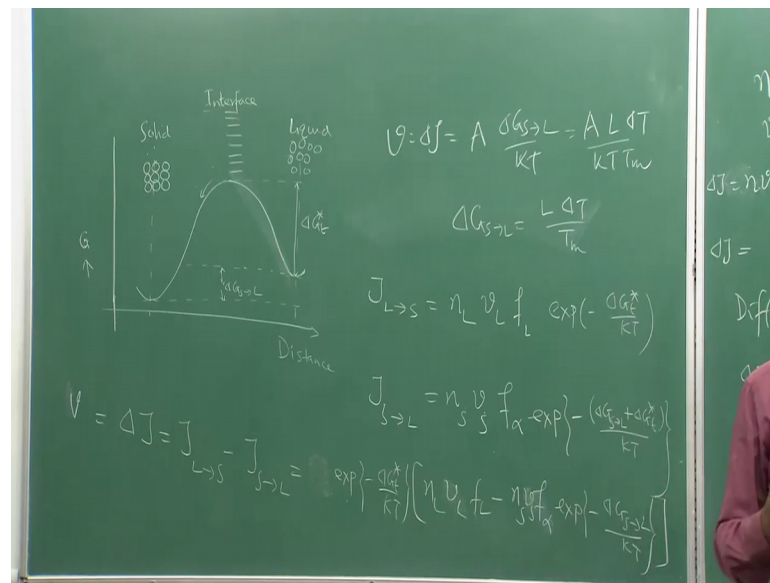 Interface
Solid
Liquid
G
ΔG_t^*
ΔG_{S→L}
Distance
V : ΔJ = A ΔG_{S→L}/KT = A L ΔT/KT T_m
ΔG_{S→L} = L ΔT/T_m
J_{L→S} = n_L ν_L f_L exp(- ΔG_t^*/KT)
J_{S→L} = n_S ν_S f_α exp{- (ΔG_{S→L} + ΔG_t^*)/KT}
V = ΔJ = J_{L→S} - J_{S→L} = exp{- ΔG_t^*/KT} [n_L ν_L f_L - n_S ν_S f_α exp{- ΔG_{S→L}/KT}]
ΔJ =